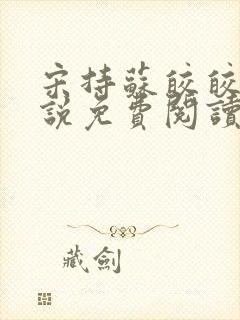 宋持蘇皎皎
說免費閱讀
藏劍